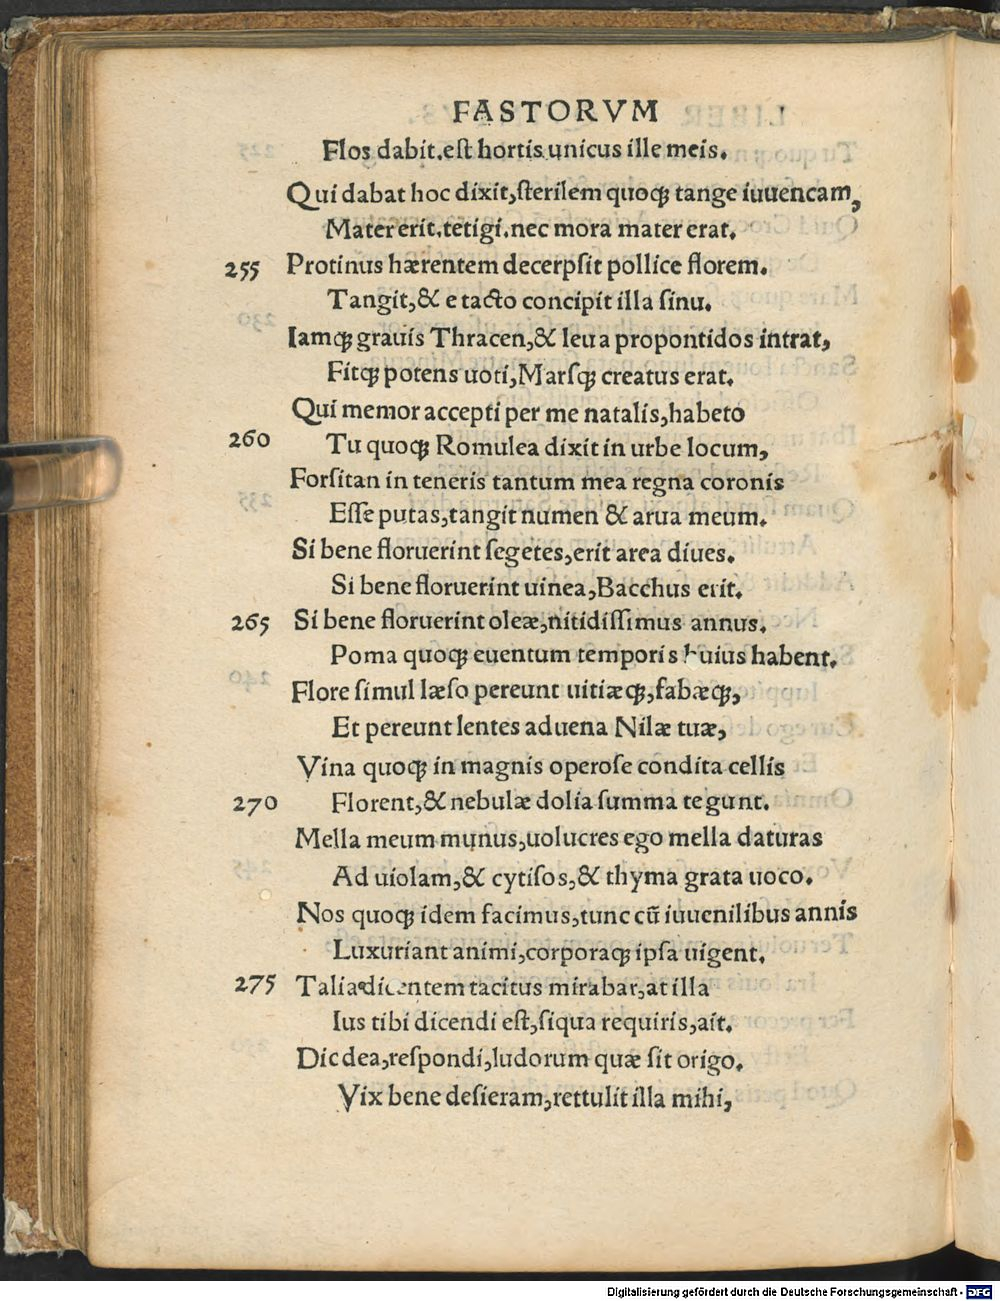 FASTORVM
Flos dabit.eſt hortis unicus ille meis.
Qui dabat hoc dixit,ſterilem quoqꝫ tange iuuencam,
Mater erit.tetigi.nec mora mater erat.
255 Protinus hærentem decerpſit pollice florem.
Tangit,& e tacto concipit illa ſinu.
Iamqꝫ grauis Thracen,& leua propontidos intrat,
Fitqꝫ potens uoti,Marſqꝫ creatus erat.
Qui memor accepti per me natalis,habeto
260 Tu quoqꝫ Romulea dixit in urbe locum,
Forſitan in teneris tantum mea regna coronis
Eſſe putas,tangit numen & arua meum.
Si bene floruerint ſegetes,erit area diues.
Si bene floruerint uinea,Bacchus erit.
265 Si bene floruerint oleæ,nitidiſſimus annus.
Poma quoqꝫ euentum temporis huius habent.
Flore ſimul læſo pereunt uitiæqꝫ,fabæqꝫ,
Et pereunt lentes aduena Nilæ tuæ,
Vina quoqꝫ in magnis operoſe condita cellis
270 Florent,& nebulæ dolia ſumma tegunt.
Mella meum munus,uolucres ego mella daturas
Ad uiolam,& cytiſos,& thyma grata uoco.
Nos quoqꝫ idem facimus,tunc cū iuuenilibus annis
Luxuriant animi,corporaqꝫ ipſa uigent.
275 Talia dicentem tacitus mirabar,at illa
Ius tibi dicendi eſt,ſiqua requiris,ait.
Dic dea,reſpondi,ludorum quæ ſit origo.
Vix bene deſieram,rettulit illa mihi,
Digitalisierung gefördert durch die Deutsche Forschungsgemeinschaft - DFG